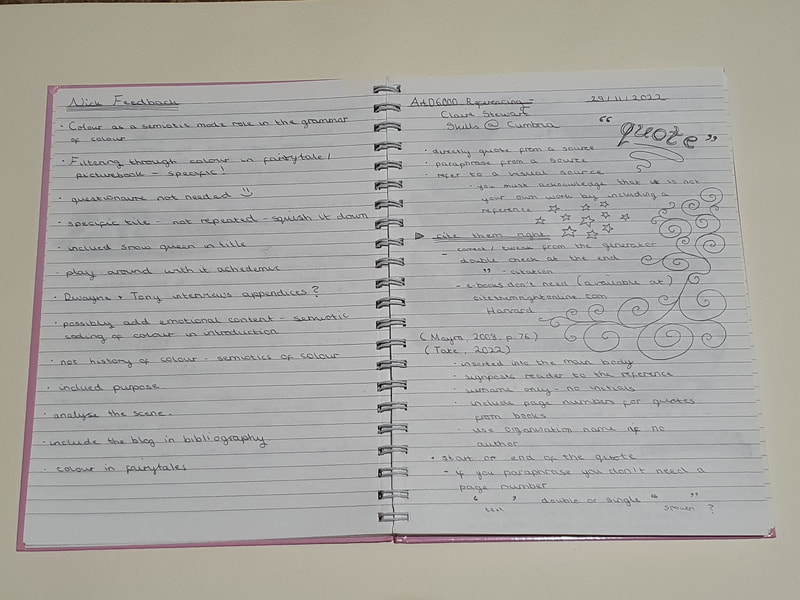 Nick Feedback
· Colour as a semiotic mode role in the grammar
of colour
· Filtering through colour in fairytale/
picturebook - specific!
· questionaure not needed :)
· specific title - not repeated - squish it down
· inclued snow queen in title
· play around with it achedemic
· Dwayne + Tony interviews appendices?
· possibly add emotional content - semiotic
coding of colour in introduction
· not history of colour - semiotics of colour
· inclued purpose
· analyse the scene.
· include the blog in bibliography.
· colour in fairytales
ArtD6000 Referencing 29/11/2022
Claire Stewart
Skills @ Cumbria
" quote "
· directly quote from a source
· paraphrase from a source
· refer to a visual source
· you must acknowledge that it is not
your own work by including a
reference
cite them right
- correct / tweak from the generator
double check at the end
" - citation
- e-books don't need (available at)
citethemrightonline.com
Harvard
(Mayra, 2008, p.76)
(Tate, 2022)
· inserted into the main body
· signposts reader to the reference
· surname only - no initials
· include page numbers for quotes
from books
· use organisation name if no
author
· start or end of the quote
- if you paraphrase you don't need a
page number
' ' double or single " "
text spoken ?